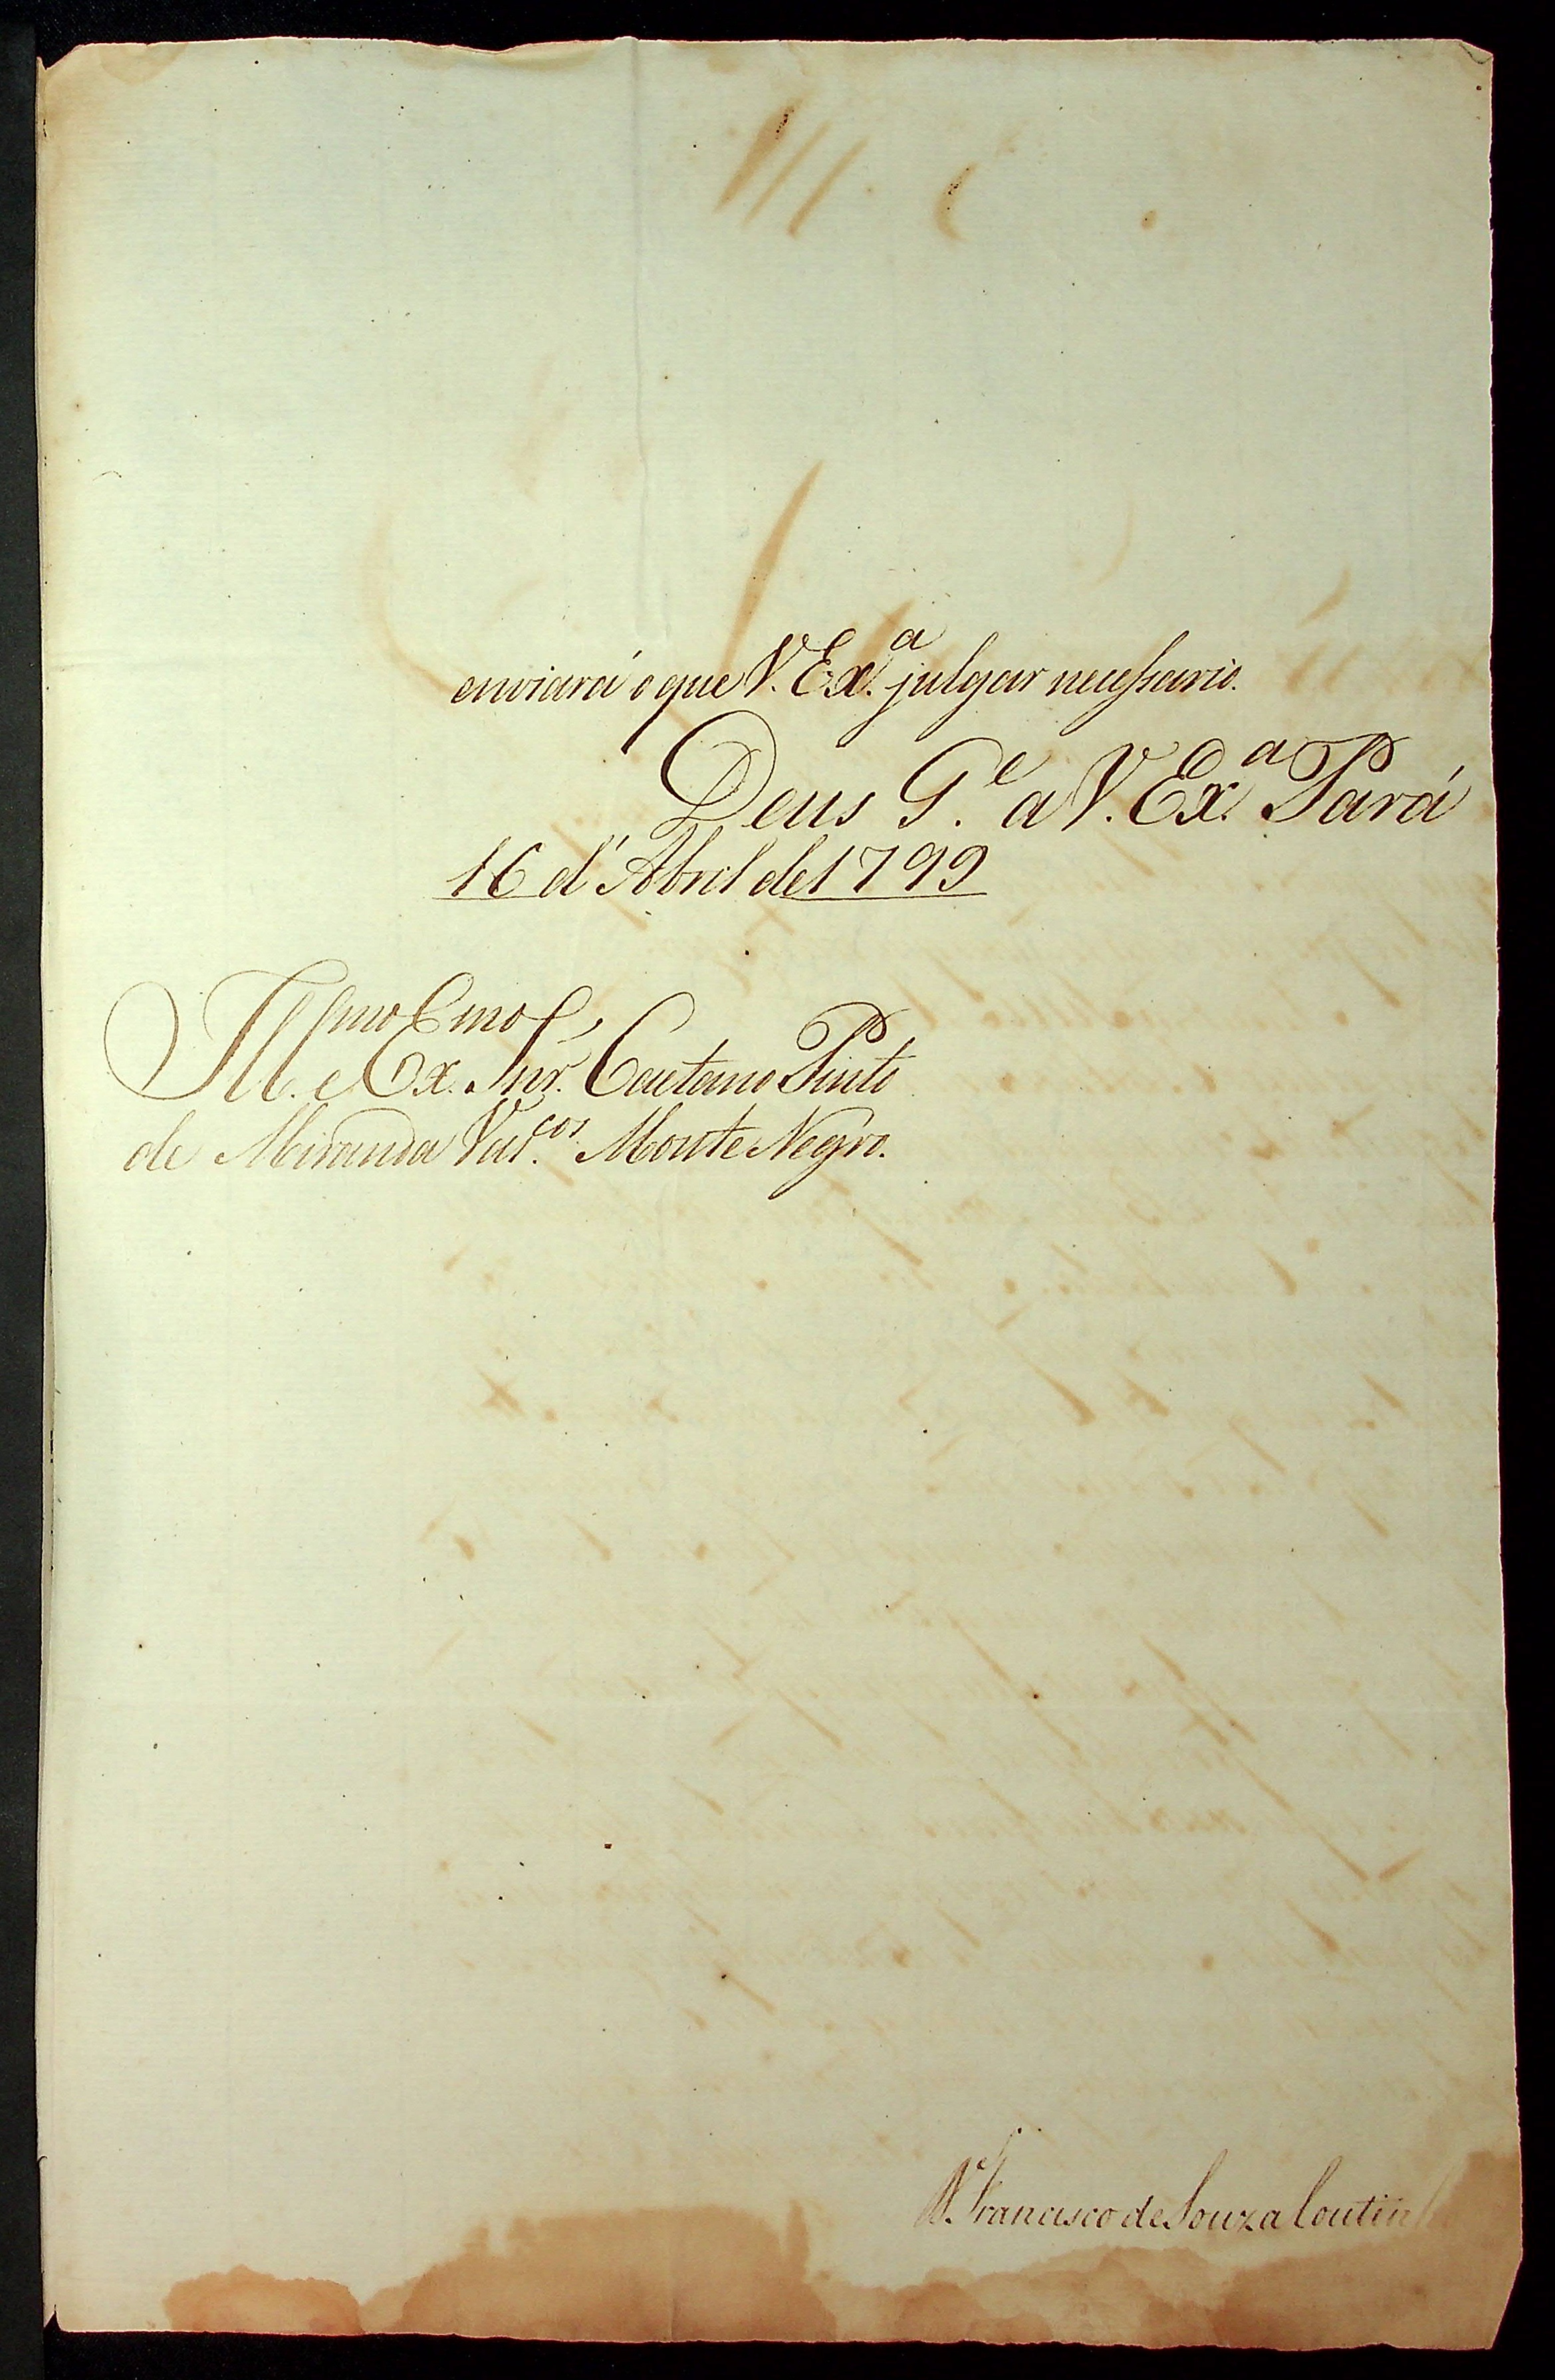 enviará o que V. Ex.ª julgar necessario.
Deus G.e a V. Ex.ª Pará
16 d'Abril de 1799
Ill.mo e Ex.mo Snr. Caetano Pinto
de Miranda Vas.cos Monte Negro.
D. Francisco de Souza Coutin